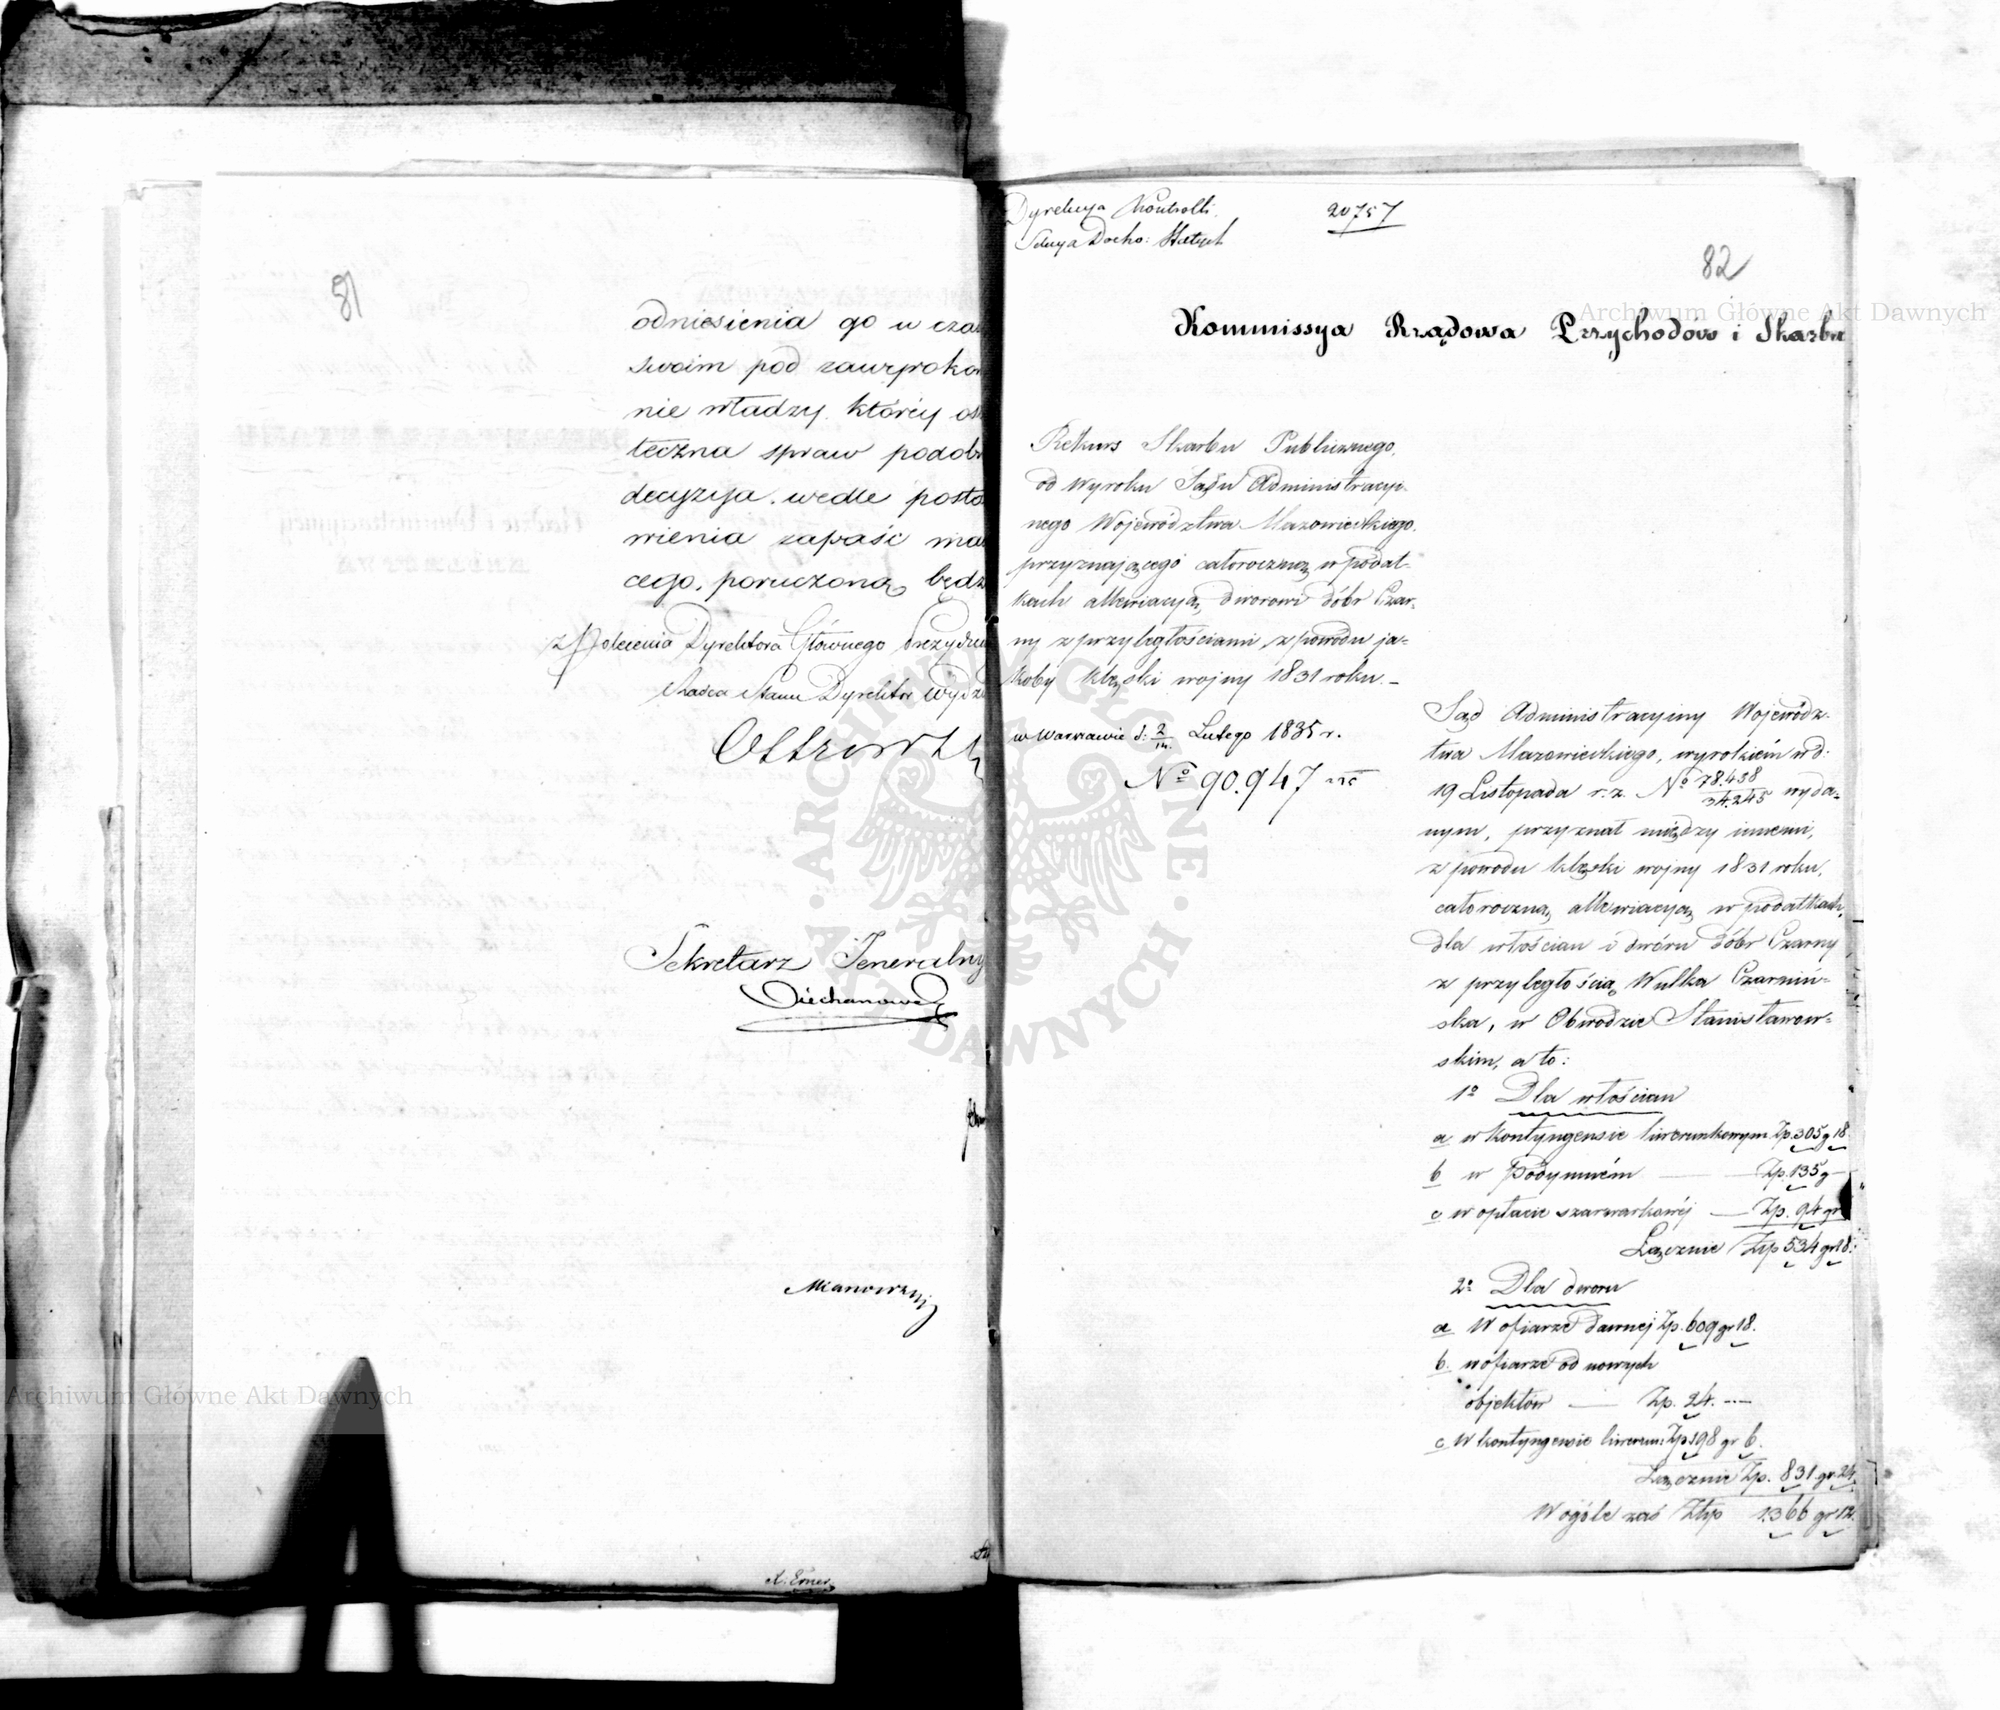 81
odniesienia go w cza
swoim pod zawyroko
nie władzy, któréy os
teczna spraw podob
decyzyja, wedle posta
wienia zapaść ma
cego, poruczoną będz
z Polecenia Dyrektora Głównego Prezyd
Radca Stanu Dyrektor Wydz
Sekretarz Jeneralny
Ciechanows
K. Erner
Dyrekcya Kontrolli
Sekcya Docho: Stałych
20757
82
Kommissya Rządowa Przychodów i Skarbu
Rekurs Skarbu Publicznego,
od Wyroku Sądu Administracyi-
nego Województwa Mazowieckiego,
przyznaiącego całoroczną w podat-
kach allewiacyą, dworowi dóbr Czar-
ny z przyległościami, z powodu ja-
koby klęski wojny 1831 roku.-
w Warszawie d: 2/14. Lutego 1835 r.
No 90.947
Sąd Administracyiny Wojewódz-
twa Mazowieckiego, wyrokiem w d:
19 Listopada r. z. No 78.438/34.245 wyda-
nym, przyznał między innemi,
z powodu klęski wojny 1831 roku,
całoroczną allewiacyą w podatkach,
dla włościan i dworu dóbr Czarny
z przyległością Wulka Czarniń-
ska, w Obwodzie Stanisławow-
skim, a to:
1o Dla włościan
a w kontyngensie liwerunkowym Zp. 305 g 18.
b w Podymném Zp. 135 g-
c w opłacie szarwarkowéj Zp. 94 gr
Łącznie Złp 534 gr 18.
2o Dla dworu
a W ofiarze dawnej Zp. 609 gr 18.
b. w ofiarze od nowych
objektów Zp. 24.
c W kontyngensie liwerun: Zp 198 gr 6.
Łącznie Zp. 831 gr. 24.
W ogóle zaś Złp 1366 gr 12.
Archiwum Główne Akt Dawnych
Archiwum Główne Akt Dawnych
ARCHIWUM GŁÓWNE AKT DAWNYCH